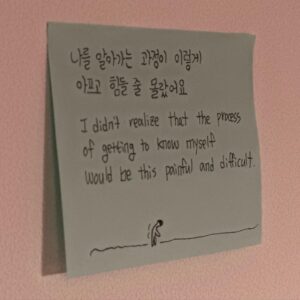 나를 알아가는 과정이 이렇게
아프고 힘들 줄 몰랐어요
I didn't realize that the process
of getting to know myself
would be this painful and difficult.